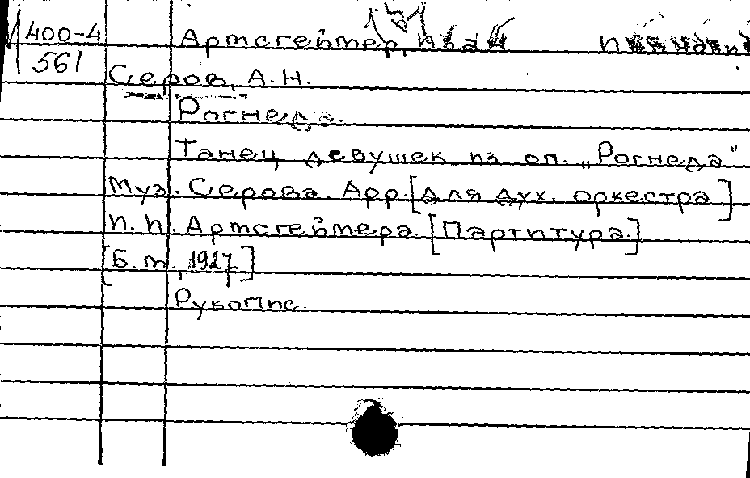 400-4
561
Артсгеймер,
Серов, А.Н.
Рогнеда.
Танец девушек из оп. „Рогнеда"
Муз. Серова. Арр. [для дух. оркестра]
И. И. Артсгеймера. [Партитура.]
[Б. м., 1927.]
Рукопис.